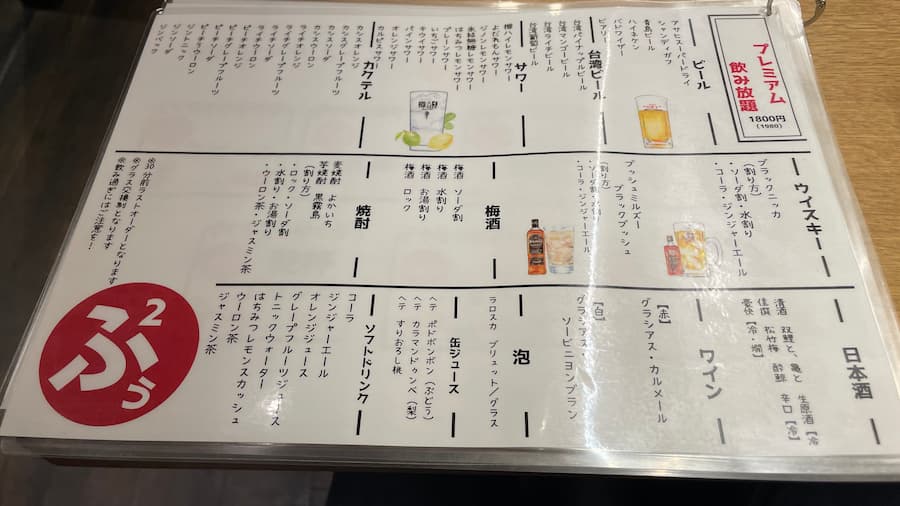 プレミアム
飲み放題
1800円
(1980)
ビール
アサヒスーパードライ
シャンディガフ
青島ビール
ハイネケン
バドワイザー
ビアリー
台湾ビール
台湾パイナップルビール
台湾マンゴービール
台湾ライチビール
台湾葡萄ビール
サワー
樽ハイレモンサワー
よだれもんサワー
ジノンレモンサワー
氷結無糖レモンサワー
はちみつレモンサワー
プレーンサワー
いちごサワー
キウイサワー
パインサワー
オレンジサワー
カルピスサワー
カクテル
カシスオレンジ
カシスグレープフルーツ
カシスソーダ
カシスウーロン
ライチオレンジ
ライチグレープフルーツ
ライチソーダ
ライチウーロン
ピーチオレンジ
ピーチグレープフルーツ
ピーチソーダ
ピーチウーロン
ジントニック
ジンソーダ
ジンバック
ウイスキー
ブラックニッカ
(割り方)
・ソーダ割・水割り
・コーラ・ジンジャーエール
ブッシュミルズ
ブラックブッシュ
(割り方)
・ソーダ割・水割り
・コーラ・ジンジャーエール
梅酒
梅酒 ソーダ割
梅酒 水割り
梅酒 お湯割り
梅酒 ロック
焼酎
麦焼酎 よかいち
芋焼酎 黒霧島
(割り方)
・ロック・ソーダ割
・水割り・お湯割り
・ウーロン茶・ジャスミン茶
※30分前ラストオーダーとなります
※グラス交換制となります
※飲み過ぎにはご注意を!
日本酒
清酒 双鯉と、亀と 生原酒【冷】
佳撰 松竹梅 酔鯨 辛口【冷】
豪快【冷・燗】
ワイン
【赤】
グラシアス・カルメール
【白】
グラシアス・
ソービニヨンブラン
泡
ラロスカ ブリュット/グラス
缶ジュース
ヘテ ポドボンボン(ぶどう)
ヘテ カラマンドゥンペ(梨)
ヘテ すりおろし桃
ソフトドリンク
コーラ
ジンジャーエール
オレンジジュース
グレープフルーツジュース
トニックウォーター
はちみつレモンスカッシュ
ウーロン茶
ジャスミン茶
ぷ2ぅ